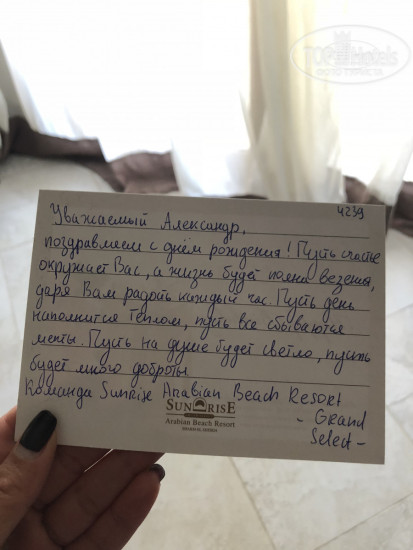 4239
Уважаемый Александр,
поздравляем с днём рождения! Пусть счастье
окружает Вас, а жизнь будет полна везения,
даря Вам радость каждый час. Пусть день
наполнится теплом, пусть все сбываются
мечты. Пусть на душе будет светло, пусть
будет много доброты
Команда Sunrise Arabian Beach Resort
- Grand
Select -
SUNRISE
Arabian Beach Resort
TopHotels